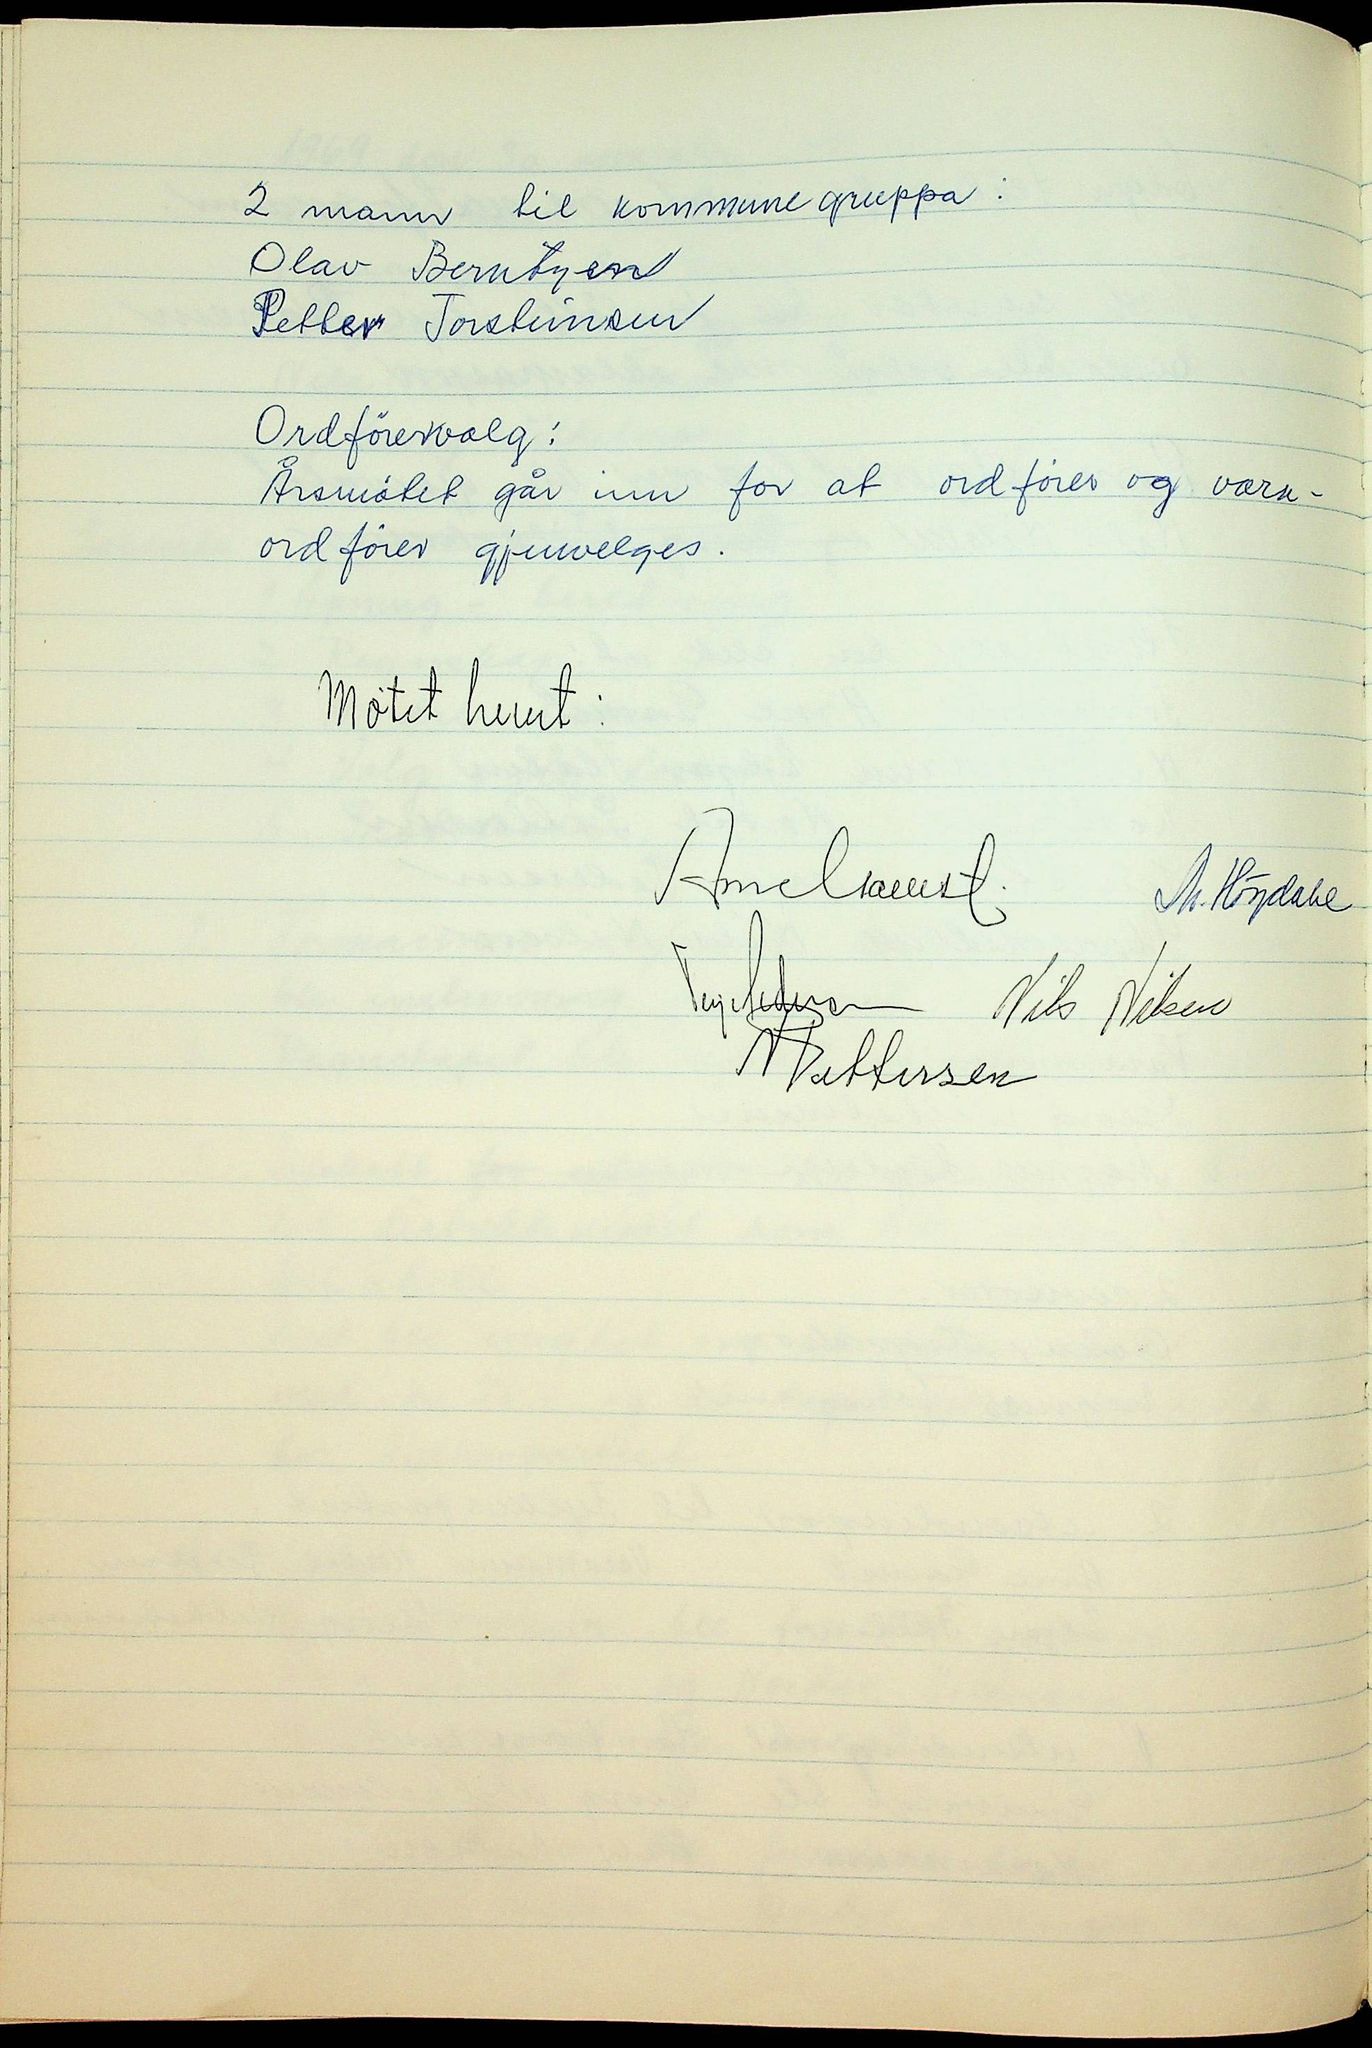 2 mann til kommunegruppa:
Olav Berntzen
Petter Torsteinsen
Ordförervalg:
Årsmøtet går inn for at ordförer og vara-
ordförer gjenvelges.
Møtet hevet:
Høydahl
Nils Nilsen
Pettersen